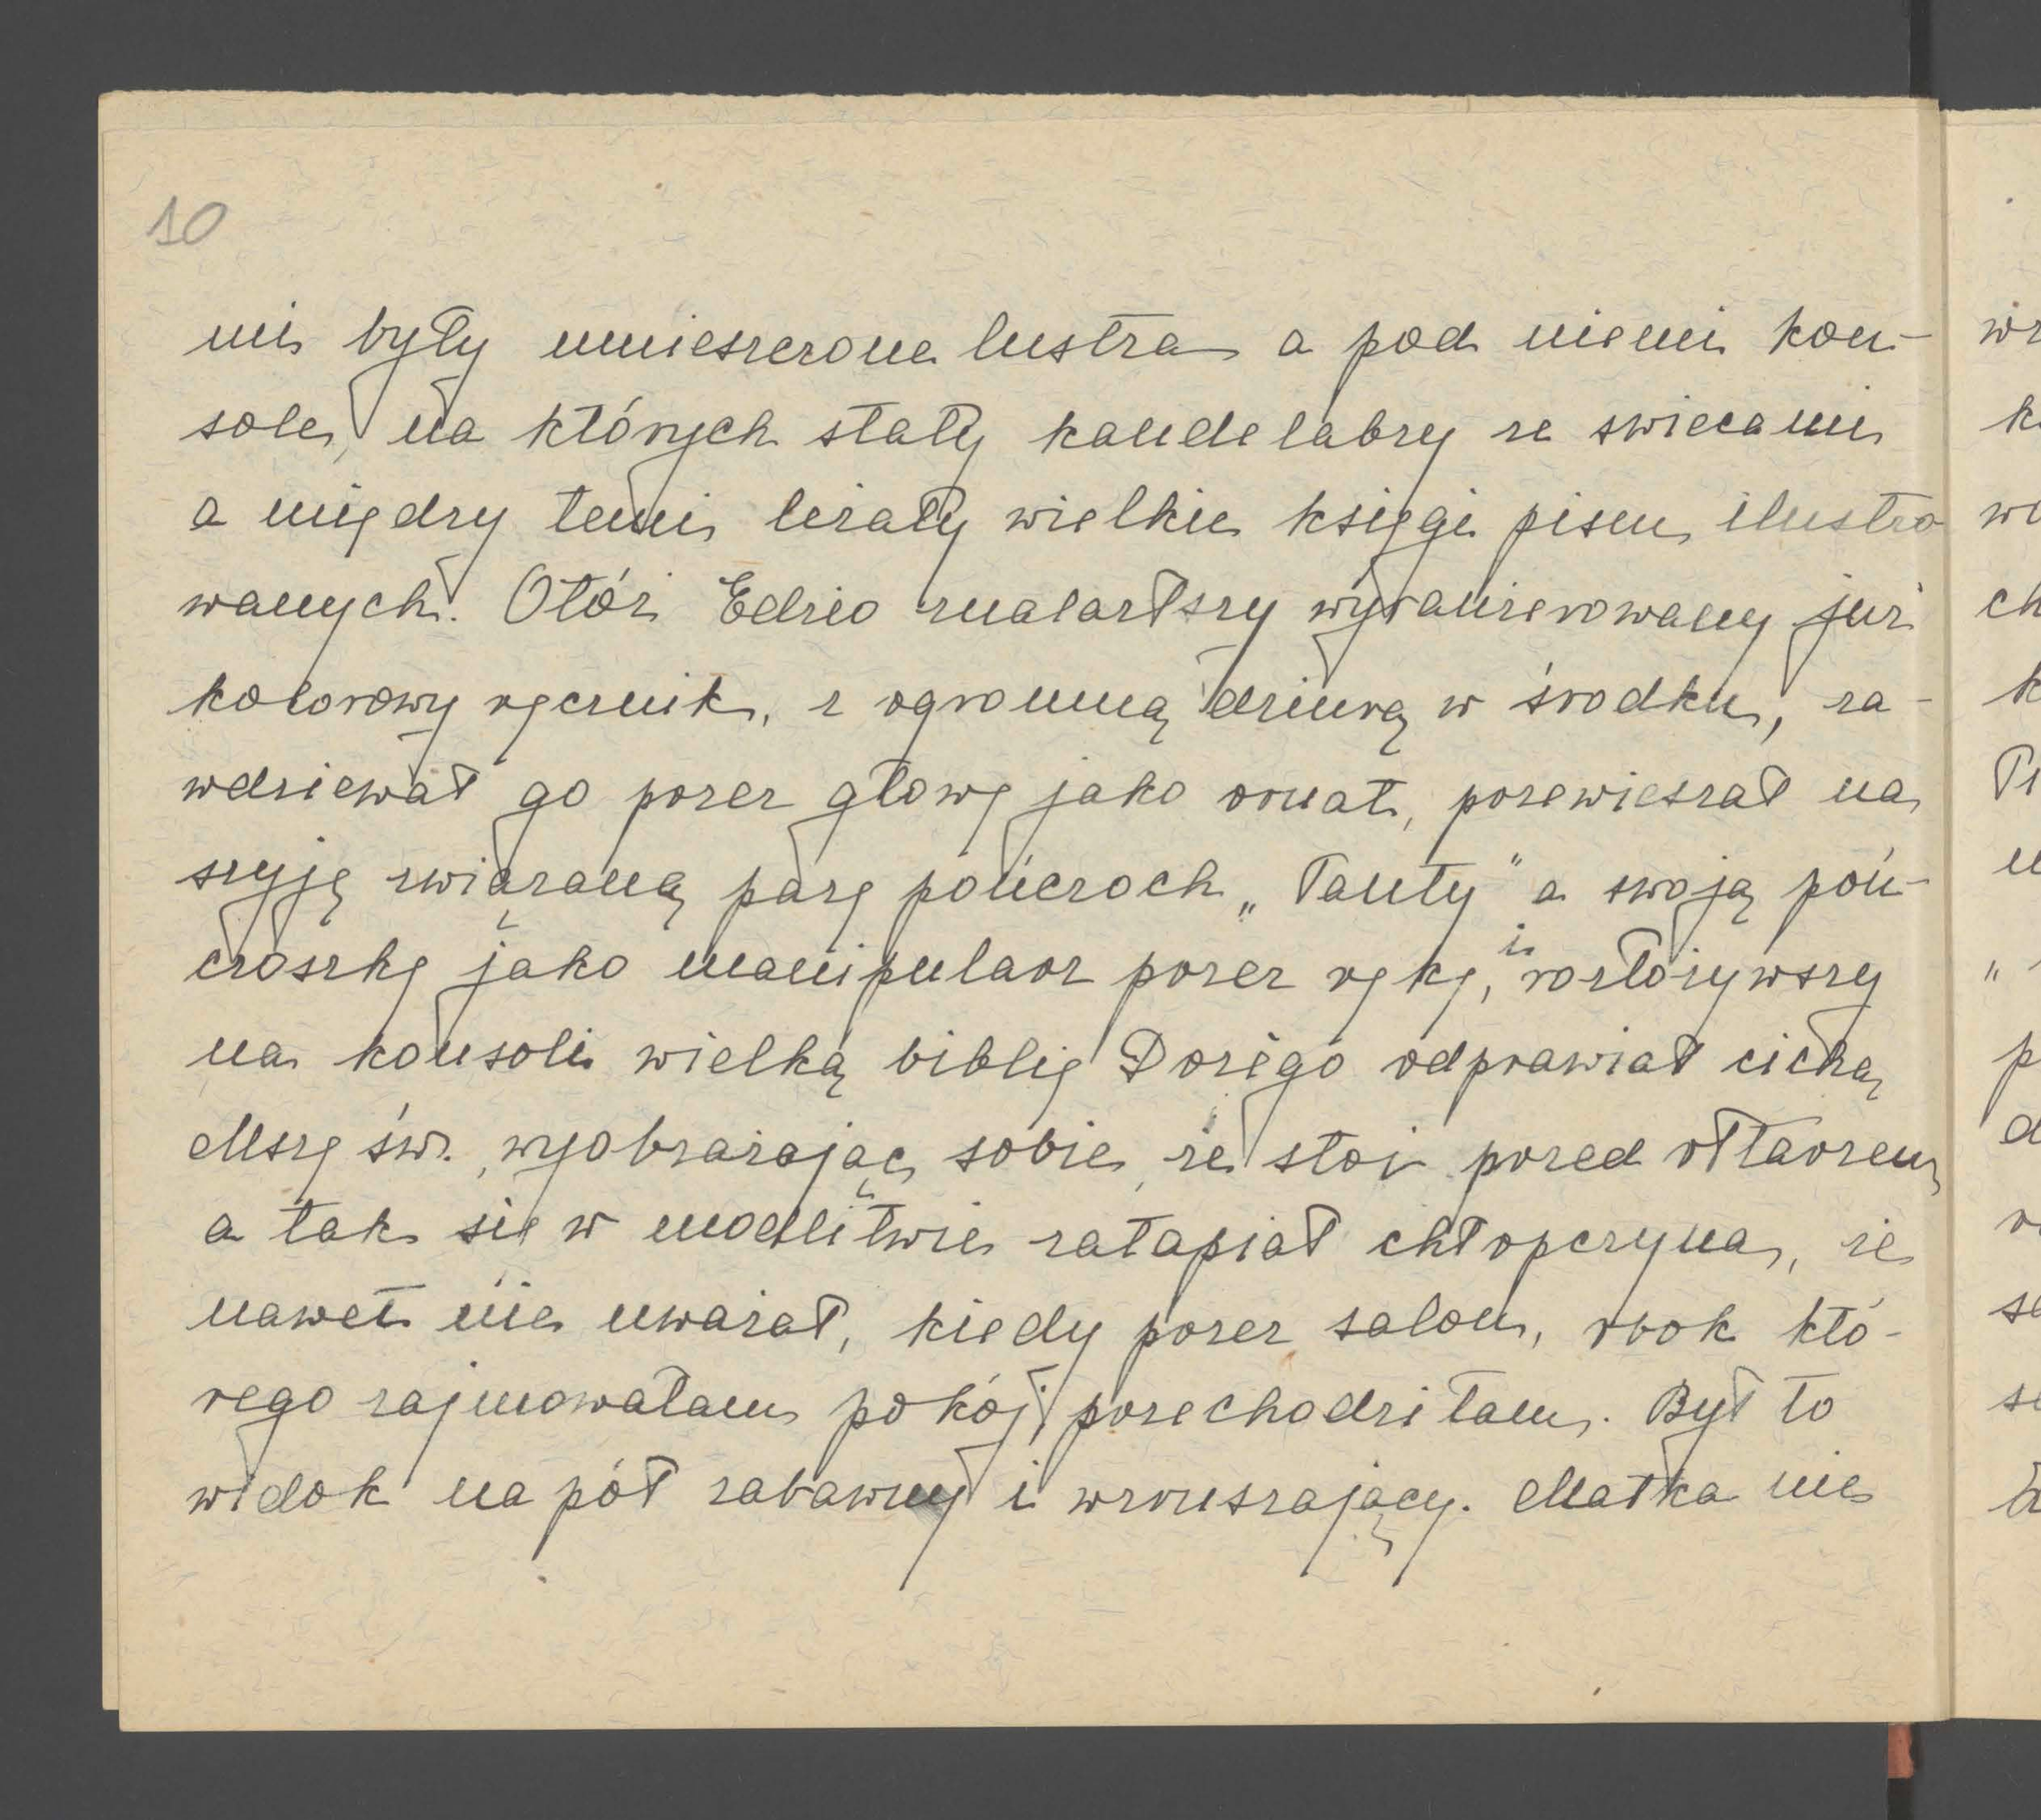 10
mi były umieszczone lustra a pod niemi kon-
sole, na których stały kandelabry ze swiecami
a między temi leżały wielkie księgi pism ilustro
wanych. Otóż Edzio znalazłszy wyranżerowany już
kolorowy ręcznik, z ogromną dziurą w środku, za-
wdziewał go przez głowę jako ornat, przewieszał na
szyję związaną parę pończoch „Tanty" a swoją poń-
czoszkę jako manipularz przez rękę, i rozłożywszy
na konsoli wielką biblię Dorégo odprawiał cichą
Mszę św. wyobrażając sobie, że stoi przed ołtarzem
a tak się w modlitwie zatapiał chłopczyna, że
nawet nie uważał, kiedy przez salon, obok któ-
rego zajmowałam pokój, przechodziłam. Był to
widok na pół zabawny i wzruszający. Matka nie
wz
k
w
ch
k
u
„
p
d
s
s